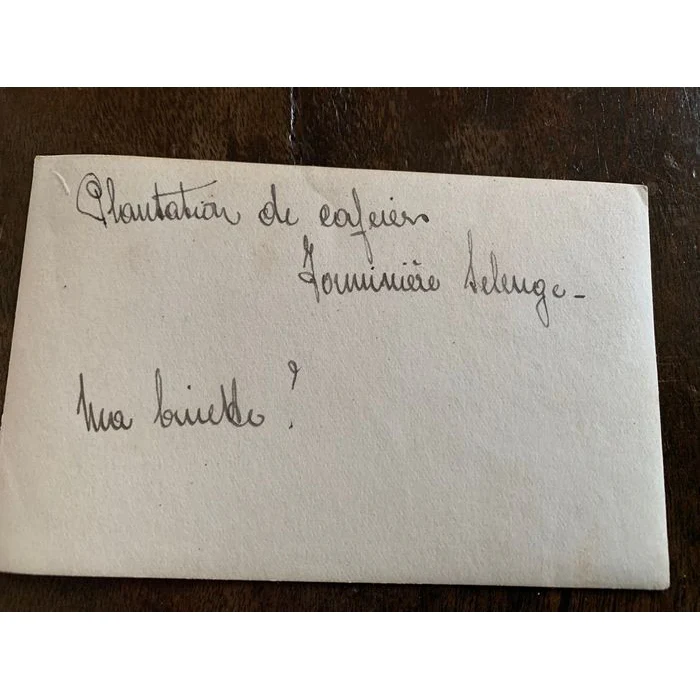 Plantation de cafeiers
Forminière Selenge -
Ma binette !